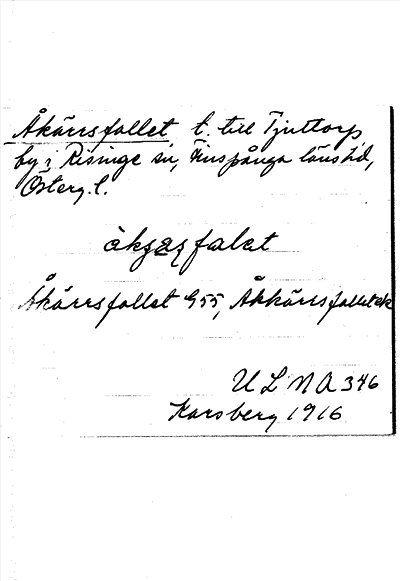 Åkärrsfallet t. till Tjuttorp
by i Risinge sn, Finspånga länstid,
Österg. l.
Åkärrsfallet G55, Åkkärrsfallet ek
U L M A 346
Karsberg 1916